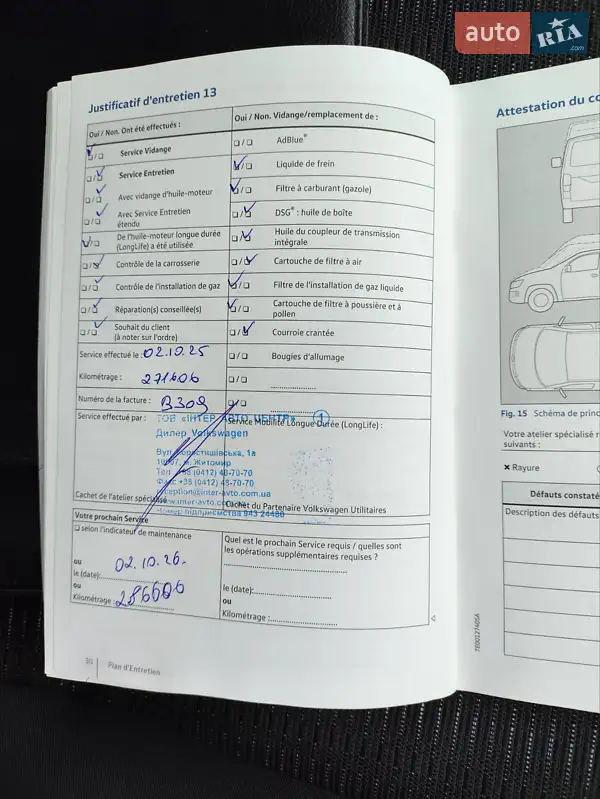 auto RIA .com
Justificatif d'entretien 13
Oui / Non. Ont été effectués :
Service Vidange
Service Entretien
Avec vidange d'huile-moteur
Avec Service Entretien
étendu
De l'huile-moteur longue durée
(LongLife) a été utilisée
Contrôle de la carrosserie
Contrôle de l'installation de gaz
Réparation(s) conseillée(s)
Souhait du client
(à noter sur l'ordre)
Service effectué le : 02.10.25
Kilométrage : 271606
Numéro de la facture : B309
Service effectué par :
Oui / Non. Vidange/remplacement de :
AdBlue®
Liquide de frein
Filtre à carburant (gazole)
DSG® : huile de boîte
Huile du coupleur de transmission
intégrale
Cartouche de filtre à air
Filtre de l'installation de gaz liquide
Cartouche de filtre à poussière et à
pollen
Courroie crantée
Bougies d'allumage
Service Mobilité Longue Durée (LongLife) :
ТОВ «ІНТЕР АВТО ЦЕНТР» 1
Дилер Volkswagen
Вул. Коростишівська, 1а
м. Житомир
Тел. +38 (0412) 48-70-70
Факс +38 (0412) 48-70-70
reception@inter-avto.com.ua
www.inter-avto.com.ua
Номер підприємства 943 24480
Cachet de l'atelier spécialisé
Cachet du Partenaire Volkswagen Utilitaires
Votre prochain Service
selon l'indicateur de maintenance
ou
le (date): 02.10.26.
ou
Kilométrage : 286606
Quel est le prochain Service requis / quelles sont
les opérations supplémentaires requises ?
le (date):
ou
Kilométrage :
50 Plan d'Entretien
Attestation du co
Fig. 15 Schéma de princ
Votre atelier spécialisé r
suivants :
× Rayure
Défauts constaté
Description des défauts
7E0012740SA